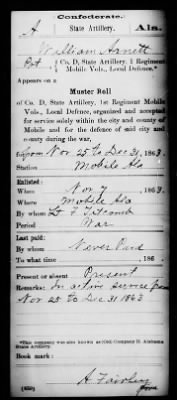 Confederate.
A State Artillery. Ala.
William Arnett
Pvt Co. D, State Artillery, 1 Regiment
Mobile Vols., Local Defence.*
Appears on a
Muster Roll
of Co. D, State Artillery, 1st Regiment Mobile
Vols., Local Defence, organized and accepted
for service solely within the city and county of
Mobile and for the defence of said city and
county during the war,
from Nov 25 to Dec 31, 1863.
Station Mobile Ala
Enlisted:
When Nov 7, 1863.
Where Mobile Ala
By whom Lt F Titcomb
Period War
Last paid:
By whom Never Paid
To what time , 186 .
Present or absent Present
Remarks: In active service from
Nov 25 to Dec 31 1863
*This company was also known as Company D, Alabama
State Artillery.
Book mark:
A. Fairley
Copyist.